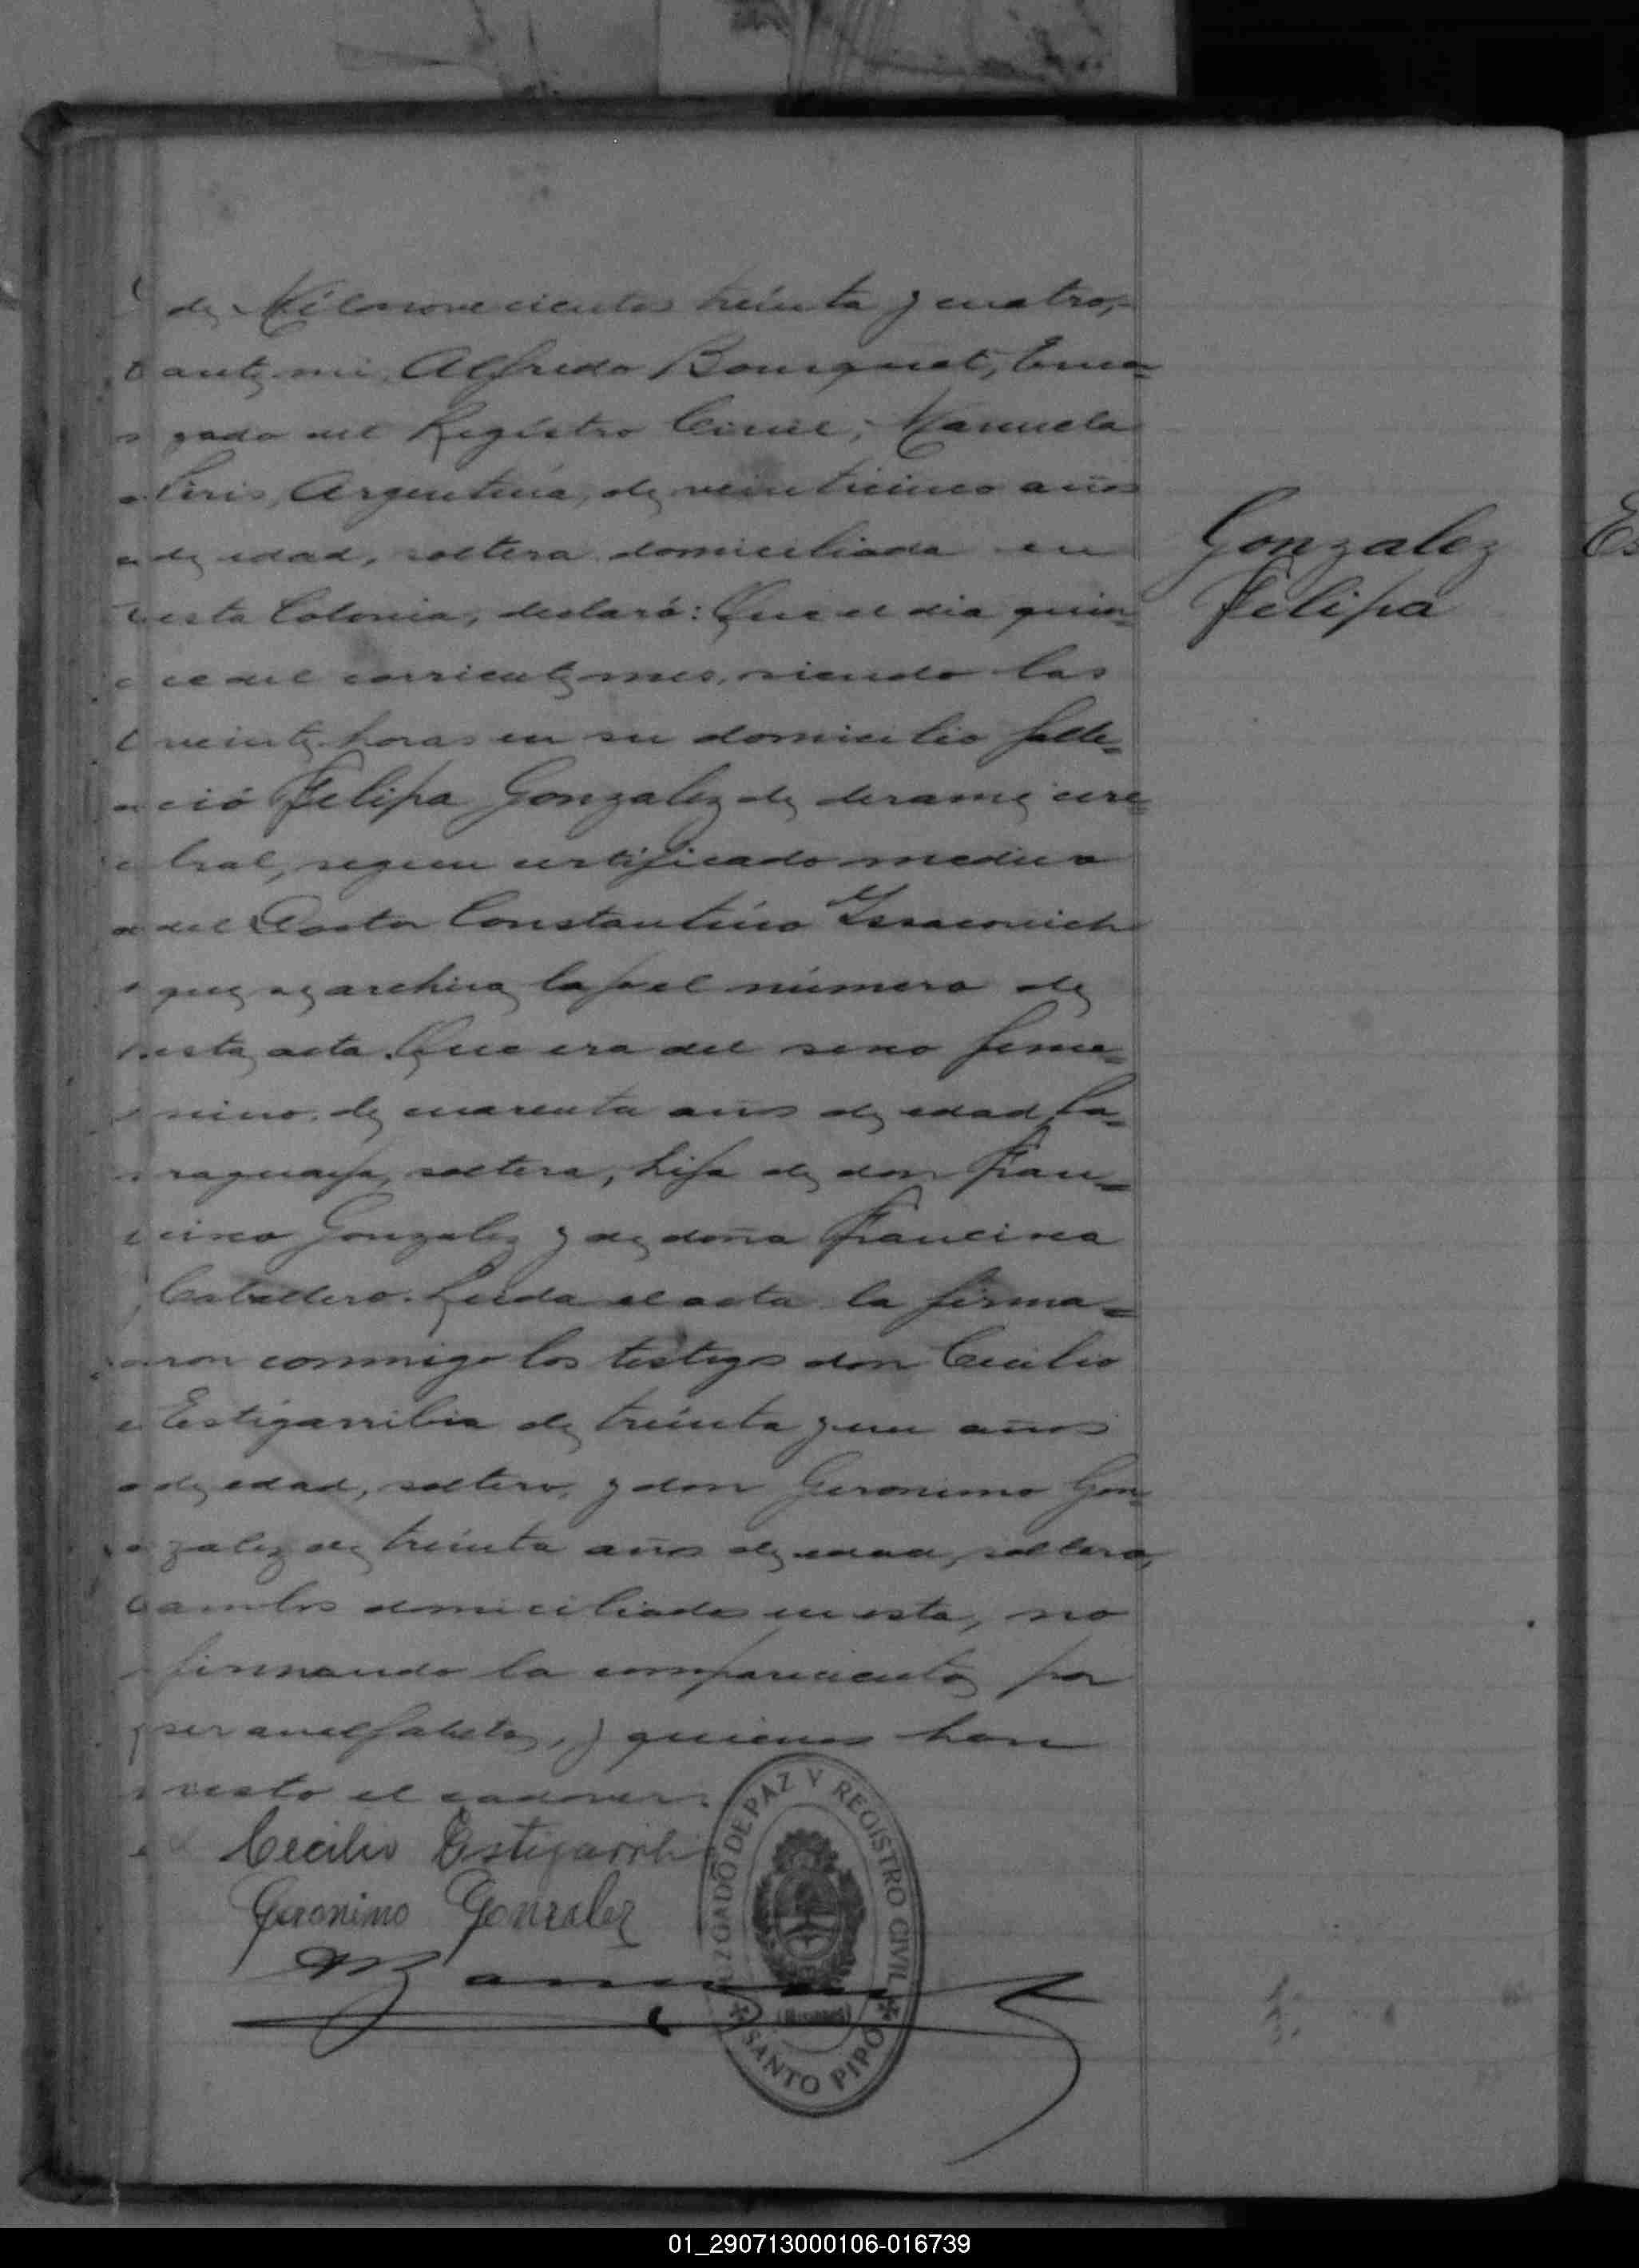 de Milnovecientos treinta y cuatro,-
ante mi, Alfredo Bourquet, Encar=
gado del Registro Civil, Manuela
Piris, Argentina, de veinticinco años
de edad, soltera domiciliada en
esta Colonia, declaró: Que el dia quin=
ce del corriente mes, siendo las
veinte horas en su domicilio falle=
ció Felipa Gonzalez de derame cere=
bral, segun certificado medico
del Doctor Constantino Issacovich
que se archiva bajo el número de
esta acta. Que era del sexo feme=
nino, de cuarenta años de edad, Pa=
raguaya, soltera, hija de don Fran=
cisco Gonzalez y de doña Francisca
Caballero. Leida el acta la firma=
ron conmigo los testigos don Cecilio
Estigarribia de treinta y un años
de edad, soltero, y don Geronimo Gon=
zalez de treinta años de edad, soltero,
ambos domiciliados en esta, no
firmando la compareciente por
ser analfabeta, y quienes han
visto el cadaver.
Gonzalez
Felipa
Es
Cecilio Estigarribi
Geronimo Gonzalez
JUZGADO DE PAZ Y REGISTRO CIVIL
(Misiones)
SANTO PIPÓ
01_290713000106-016739